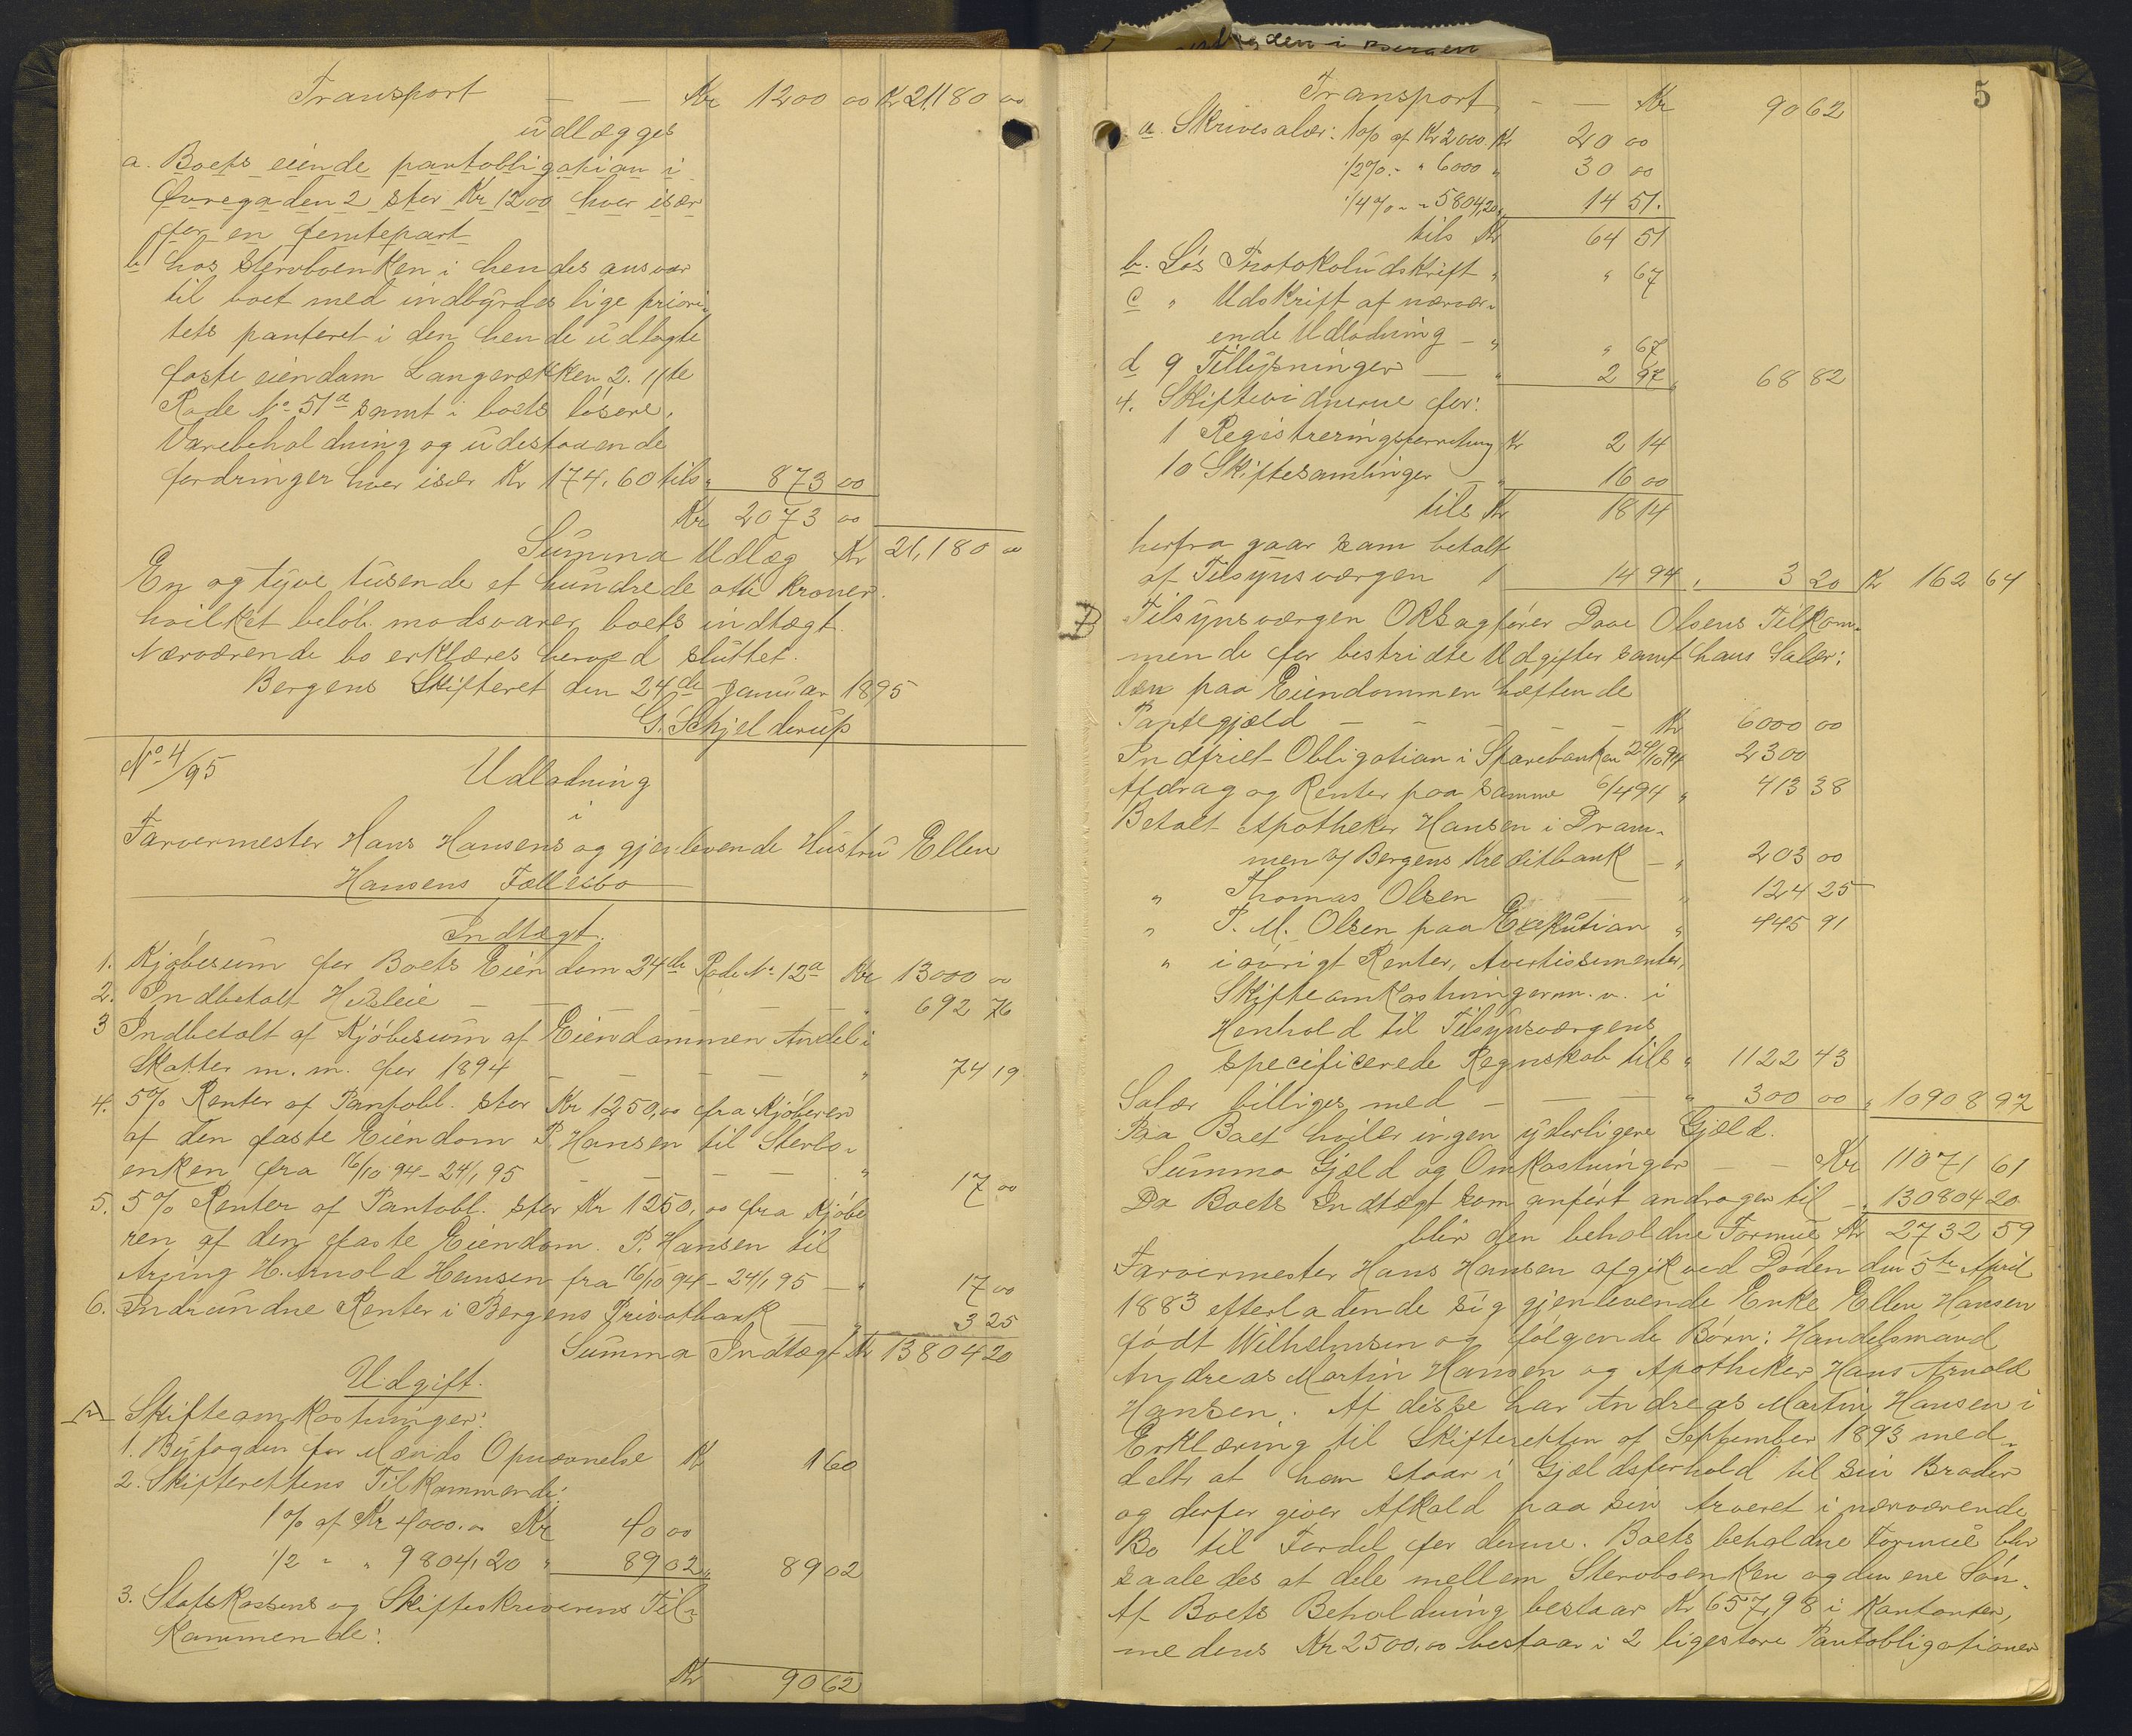 Transport — — Kr 1200 00 Kr 21,180 00
udlægges
a. Boets eiende pantobligation i
Øvregaden 2 stor Kr 1200 hver især
for en femtepart
b hos Stervboenken i hendes ansvar
til boet med indbyrdes lige priori-
tets panteret i den hende udlagte
faste eiendom Langerækken 2. 11te
Rode No 51a samt i boets løsøre,
Varebeholdning og udestaaende
fordringer hver især Kr 174.60 tils " 873 00
Kr 2073 00
Summa Udlæg Kr 21,180 00
En og tyve tusende et hundrede otti Kroner.
hvilket beløb modsvarer boets indtægt.
Nærværende bo erklæres herved sluttet.
Bergens Skifteret den 24de Januar 1895
G. Schjelderup
No 4/95
Udlodning
i
Farvermester Hans Hansens og gjenlevende Hustru Ellen
Hansens Fællesbo
Indtægt.
1. Kjøbesum for Boets Eiendom 24de Rode No 12a Kr 13000 00
2. Indbetalt Husleie — — — — " 692 76
3 Indbetalt af Kjøbesum af Eiendommen Andel i
Skatter m. m. for 1894 — — — — " 74 19
4. 5% Renter af Pantobl. stor Kr 1250,00 fra Kjøberen
af den faste Eiendom P. Hansen til Stervbo-
enken fra 16/10 94 - 24/1 95 — — — " 17 00
5. 5% Renter af Pantobl. stor Kr 1250,00 fra Kjøbe
ren af den faste Eiendom. P. Hansen til
Arving H. Arnold Hansen fra 16/10 94 - 24/1 95 — " 17 00
6. Indvundne Renter i Bergens Privatbank — " 3 25
Summa Indtægt Kr 13804 20
Udgift.
A Skifteomkostninger:
1. Byfogden for Mænds Opnævnelse Kr 1 60
2. Skifterettens Tilkommende:
1% af Kr 4000.00 Kr 40 00
1/2 " " 9804,20 " 89 02 " 89 02
3. Statskassens og Skifteskriverens Til-
kommende:
Kr 90 62
5
Transport - — Kr 90 62
a. Skriversalær: 1% af Kr 2000. Kr 20 00
1/2% - " 6000 " 30 00
1/4% - " 5804,20 " 14 51.
tils Kr 64 51
b. Løs Protokoludskrift " " 67
c " Udskrift af nærvær-
ende Udlodning - " " 67
d 9 Tillysninger — " 2 97 " 68 82
4. Skiftevidnerne for:
1 Registreringsforretning Kr 2 14
10 Skiftesamlinger - " 16 00
tils Kr 18 14
herfra gaar som betalt
af Tilsynsværgen 14 94 " 3 20 Kr 162 64
B Tilsynsværgen ORSagfører Dave Olsens Tilkom-
mende for bestridte Udgifter samt hans Salær:
den paa Eiendommen hæftende
Pantegjæld — — — — Kr 6000 00
Indfriet Obligation i Sparebanken 29/10 94 2300
Afdrag og Renter paa samme 6/4 94 " 413 38
Betalt Apotheker Hansen i Dram-
men af Bergens Kreditbank — " 203 00
" Thomas Olsen — " 124 25
" P. M. Olsen paa Exekution " 445 91
" iøvrigt Renter, Avertissementer,
Skifteomkostninger m. v. i
Henhold til Tilsynsværgens
specificerede Regnskab tils " 1122 43
Salær billiges med — — — " 300 00 " 10908 97
Paa Boet hviler ingen yderligere Gjæld.
Summa Gjæld og Omkostninger — — Kr 11071 61
Da Boets Indtægt som anført andrager til — " 130804 20
blir den beholdne Formue Kr 2732 59
Farvermester Hans Hansen afgik ved Døden den 5te April
1883 efterladende sig gjenlevende Enke Ellen Hansen
født Wilhelmsen og følgende Børn: Handelsmand
Andreas Martin Hansen og Apotheker Hans Arnold
Hansen. Af disse har Andreas Martin Hansen i
Erklæring til Skifteretten af September 1893 med-
delt, at han staar i Gjældsforhold til sin Broder
og derfor giver Afkald paa sin Arveret i nærværende
Bo til Fordel for denne. Boets beholdne Formue blir
saaledes at dele mellem Stervboenken og den ene Søn.
Af Boets Beholdning bestaar Kr 657,98 i Kontanter,
medens Kr 2500.00 bestaar i 2 ligestore Pantobligationer